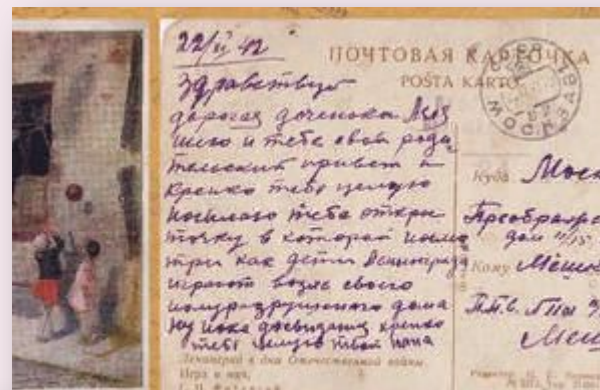 22/VI 42
ПОЧТОВАЯ КАРТОЧКА
POŜTA KARTO
МОСКВА
Здравствуй
дорогая доченька
шлю я тебе свой роди
тельский привет и
крепко тебя целую
посылаю тебе откры
точку в которой
как дети Ленинграда
играют возле своего
полуразрушенного дома
ну пока досвидания крепко
тебя целую твой папа
Куда Моск
Преображ
дом 11/15
Кому
Ленинград в дни Отечественной войны.
Игра в мяч.